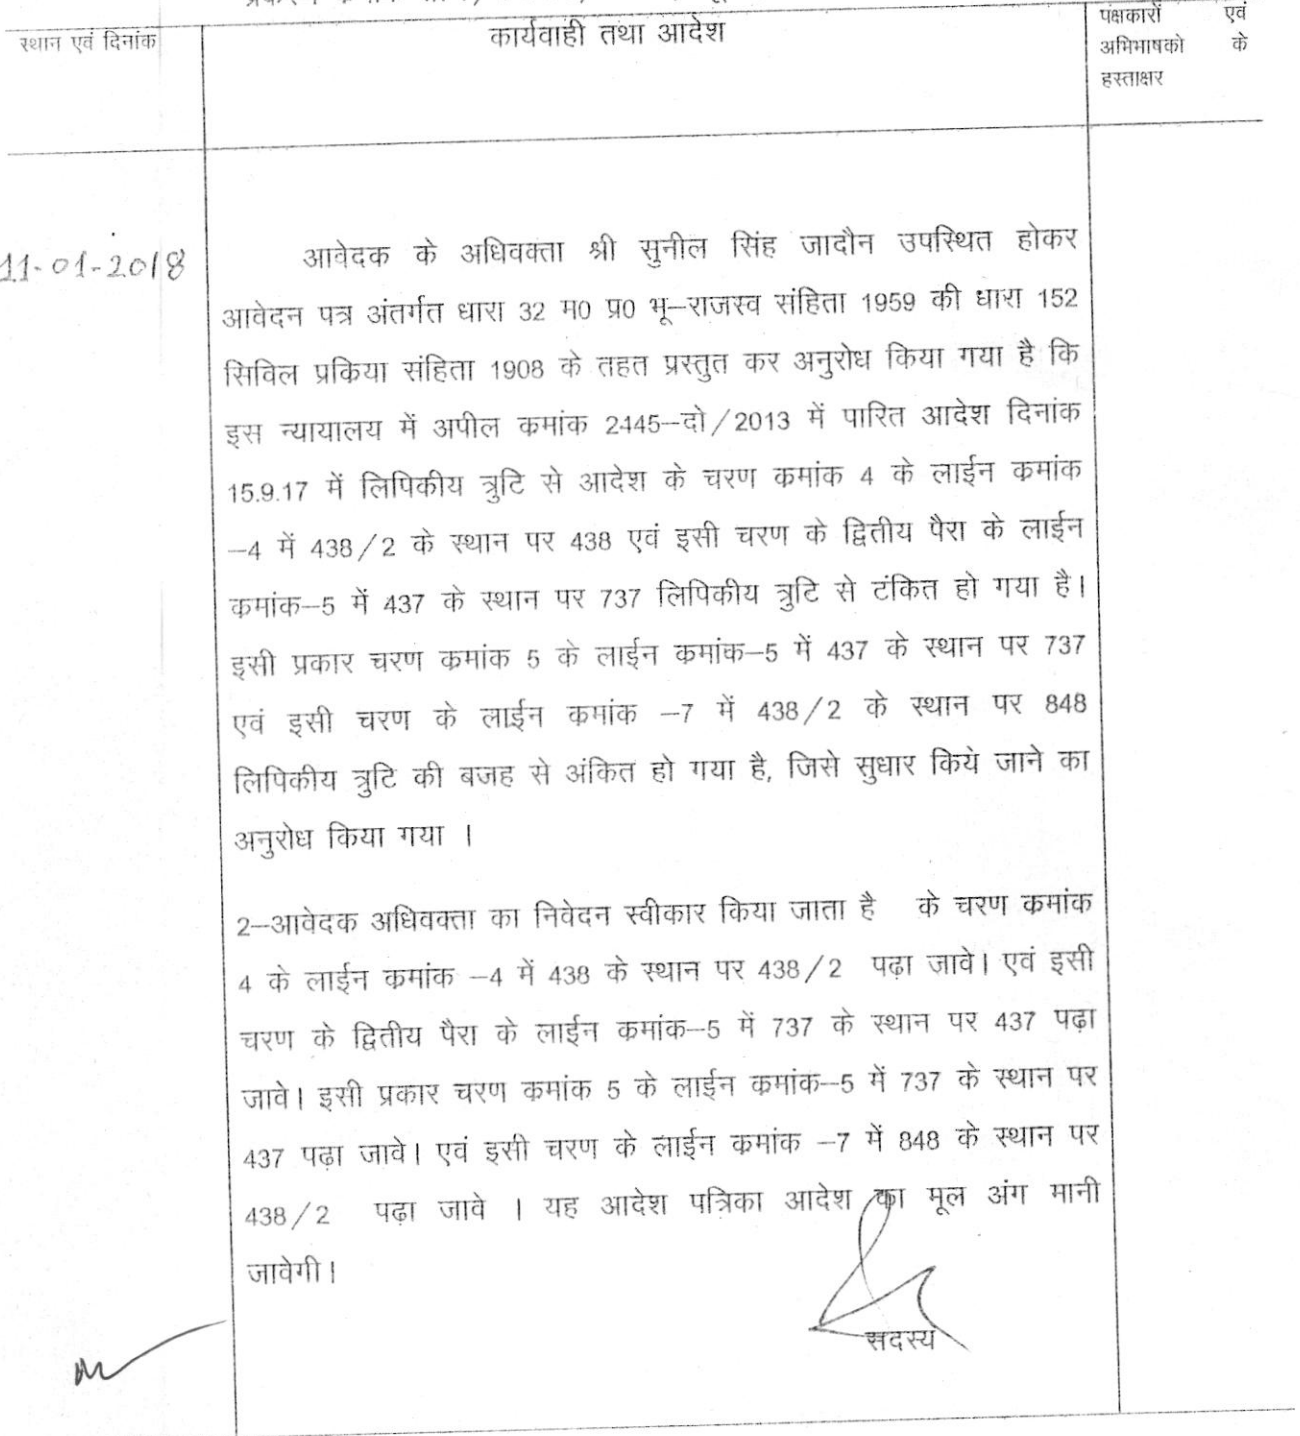 स्थान एवं दिनांक
कार्यवाही तथा आदेश
पक्षकारों एवं
अभिभाषको के
हस्ताक्षर
11-01-2018
आवेदक के अधिवक्ता श्री सुनील सिंह जादौन उपस्थित होकर
आवेदन पत्र अंतर्गत धारा 32 म0 प्र0 भू–राजस्व संहिता 1959 की धारा 152
सिविल प्रकिया संहिता 1908 के तहत प्रस्तुत कर अनुरोध किया गया है कि
इस न्यायालय में अपील कमांक 2445–दो/2013 में पारित आदेश दिनांक
15.9.17 में लिपिकीय त्रुटि से आदेश के चरण कमांक 4 के लाईन कमांक
–4 में 438/2 के स्थान पर 438 एवं इसी चरण के द्वितीय पैरा के लाईन
कमांक–5 में 437 के स्थान पर 737 लिपिकीय त्रुटि से टंकित हो गया है।
इसी प्रकार चरण कमांक 5 के लाईन कमांक–5 में 437 के स्थान पर 737
एवं इसी चरण के लाईन कमांक –7 में 438/2 के स्थान पर 848
लिपिकीय त्रुटि की बजह से अंकित हो गया है, जिसे सुधार किये जाने का
अनुरोध किया गया ।
2–आवेदक अधिवक्ता का निवेदन स्वीकार किया जाता है के चरण कमांक
4 के लाईन कमांक –4 में 438 के स्थान पर 438/2 पढ़ा जावे। एवं इसी
चरण के द्वितीय पैरा के लाईन कमांक–5 में 737 के स्थान पर 437 पढ़ा
जावे। इसी प्रकार चरण कमांक 5 के लाईन कमांक–5 में 737 के स्थान पर
437 पढ़ा जावे। एवं इसी चरण के लाईन कमांक –7 में 848 के स्थान पर
438/2 पढ़ा जावे । यह आदेश पत्रिका आदेश का मूल अंग मानी
जावेगी।
सदस्य